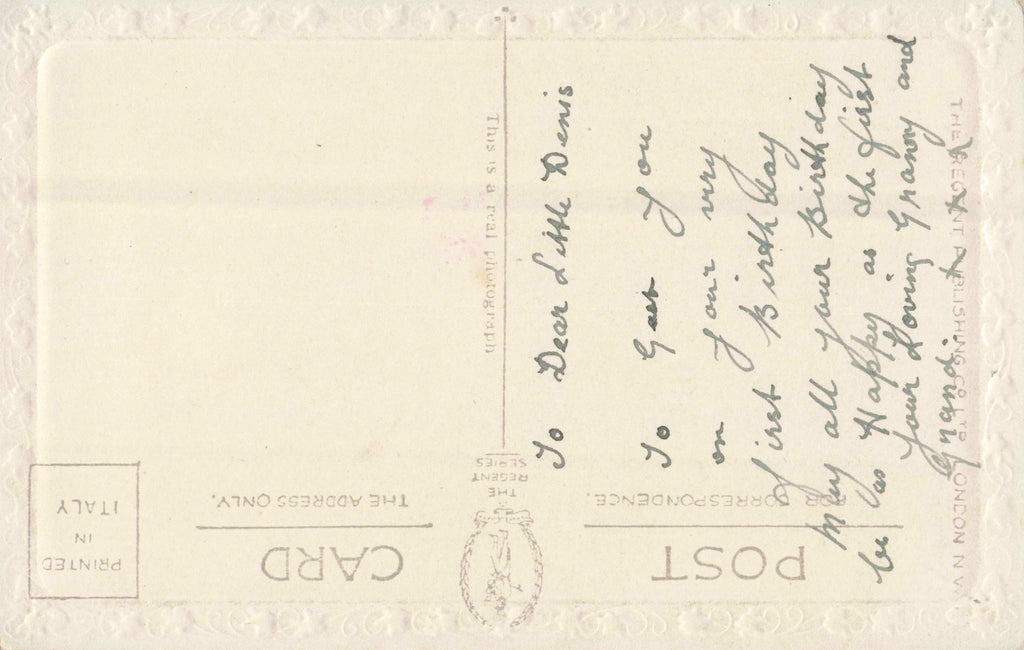 POST CARD
FOR CORRESPONDENCE.
THE ADDRESS ONLY.
THE
REGENT
SERIES
PRINTED
IN
ITALY
This is a real photograph
THE REGENT PUBLISHING CO LTD LONDON N W
To Dear Little Denis
To
You
on Your very
first Birthday
May all your Birthday
be as Happy as the first
your Loving Granny and
Grand.